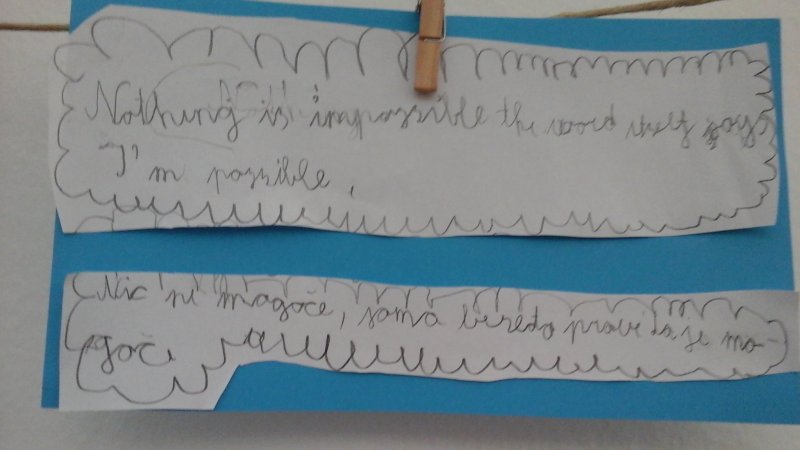 Nothing is impossible the word itself says
"I'm possible,
Nic ni magoče, sama beseda pravi da je mo-
goče